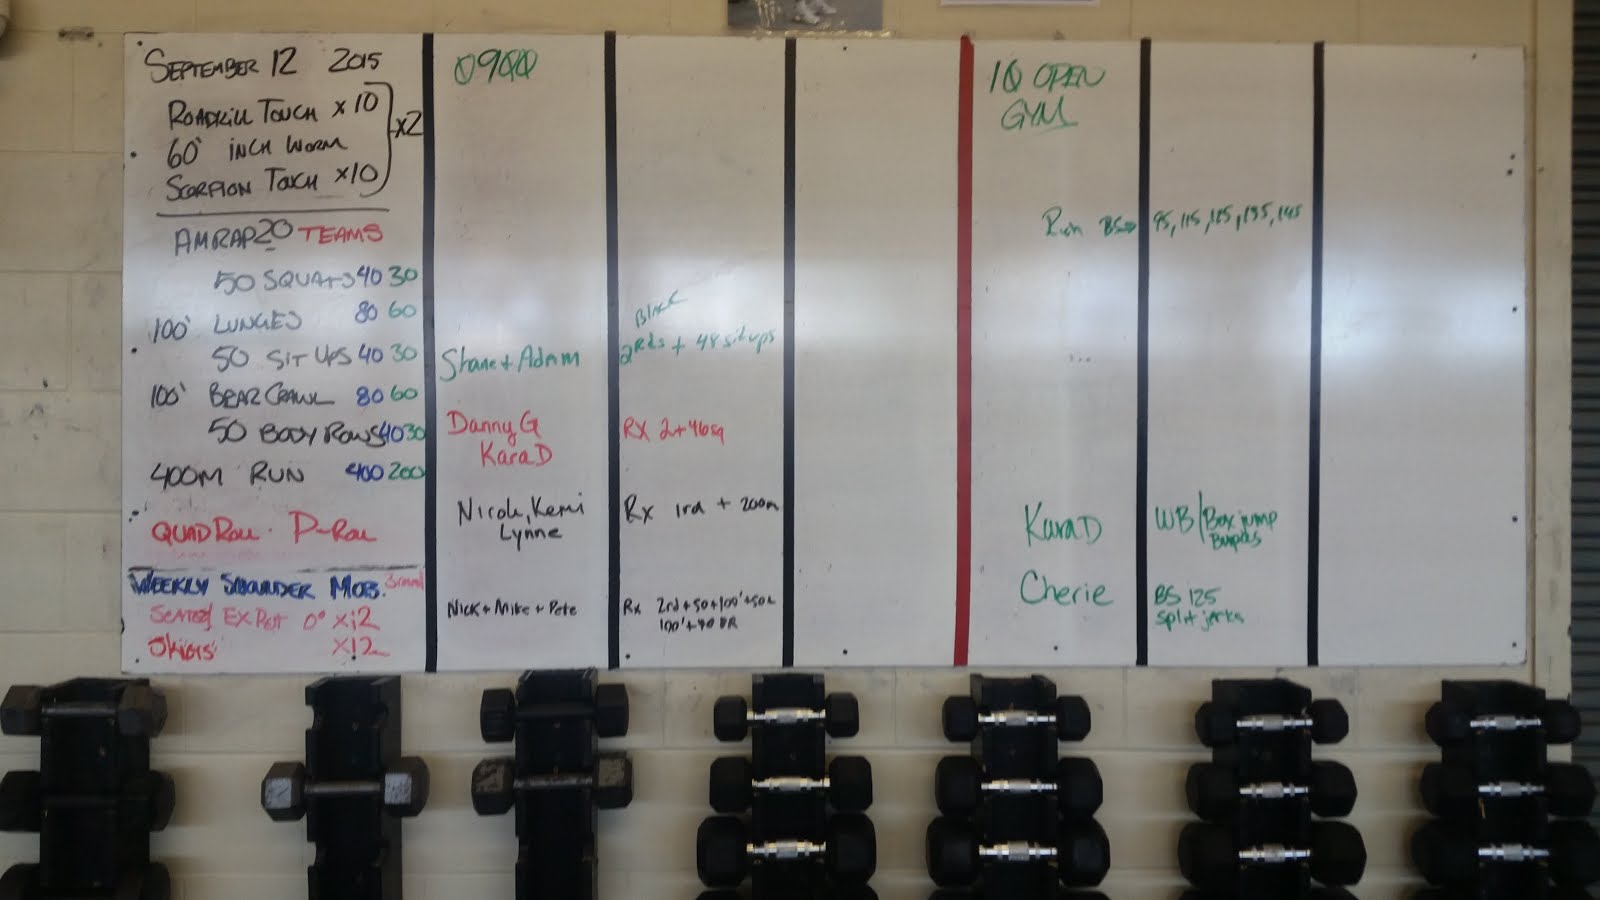 SEPTEMBER 12 2015
ROADKILL TOUCH x 10
60' INCH WORM
x2
SCORPION TOUCH x10
AMRAP 20 TEAMS
50 SQUATS 40 30
100' LUNGES 80 60
50 SIT UPS 40 30
100' BEAR CRAWL 80 60
50 BODY ROWS 40 30
400M RUN 400 200
QUAD ROLL · P-ROLL
WEEKLY SHOULDER MOB.
SEATED EX ROT 0° x12
x12
0900
Shane + Adam
Black
2 Rds + 48 sit ups
Danny G
Kara D
RX 2+46sq
Nicole, Kerri
Lynne
Rx 1rd + 200m
Nick + Mike + Pete
Rx 2rd+50+100'+50+
100'+40 BR
10 OPEN
GYM
BS 95, 115, 125, 135, 145
Kara D
WB/Box jump
Burpees
Cherie
BS 125
split jerks